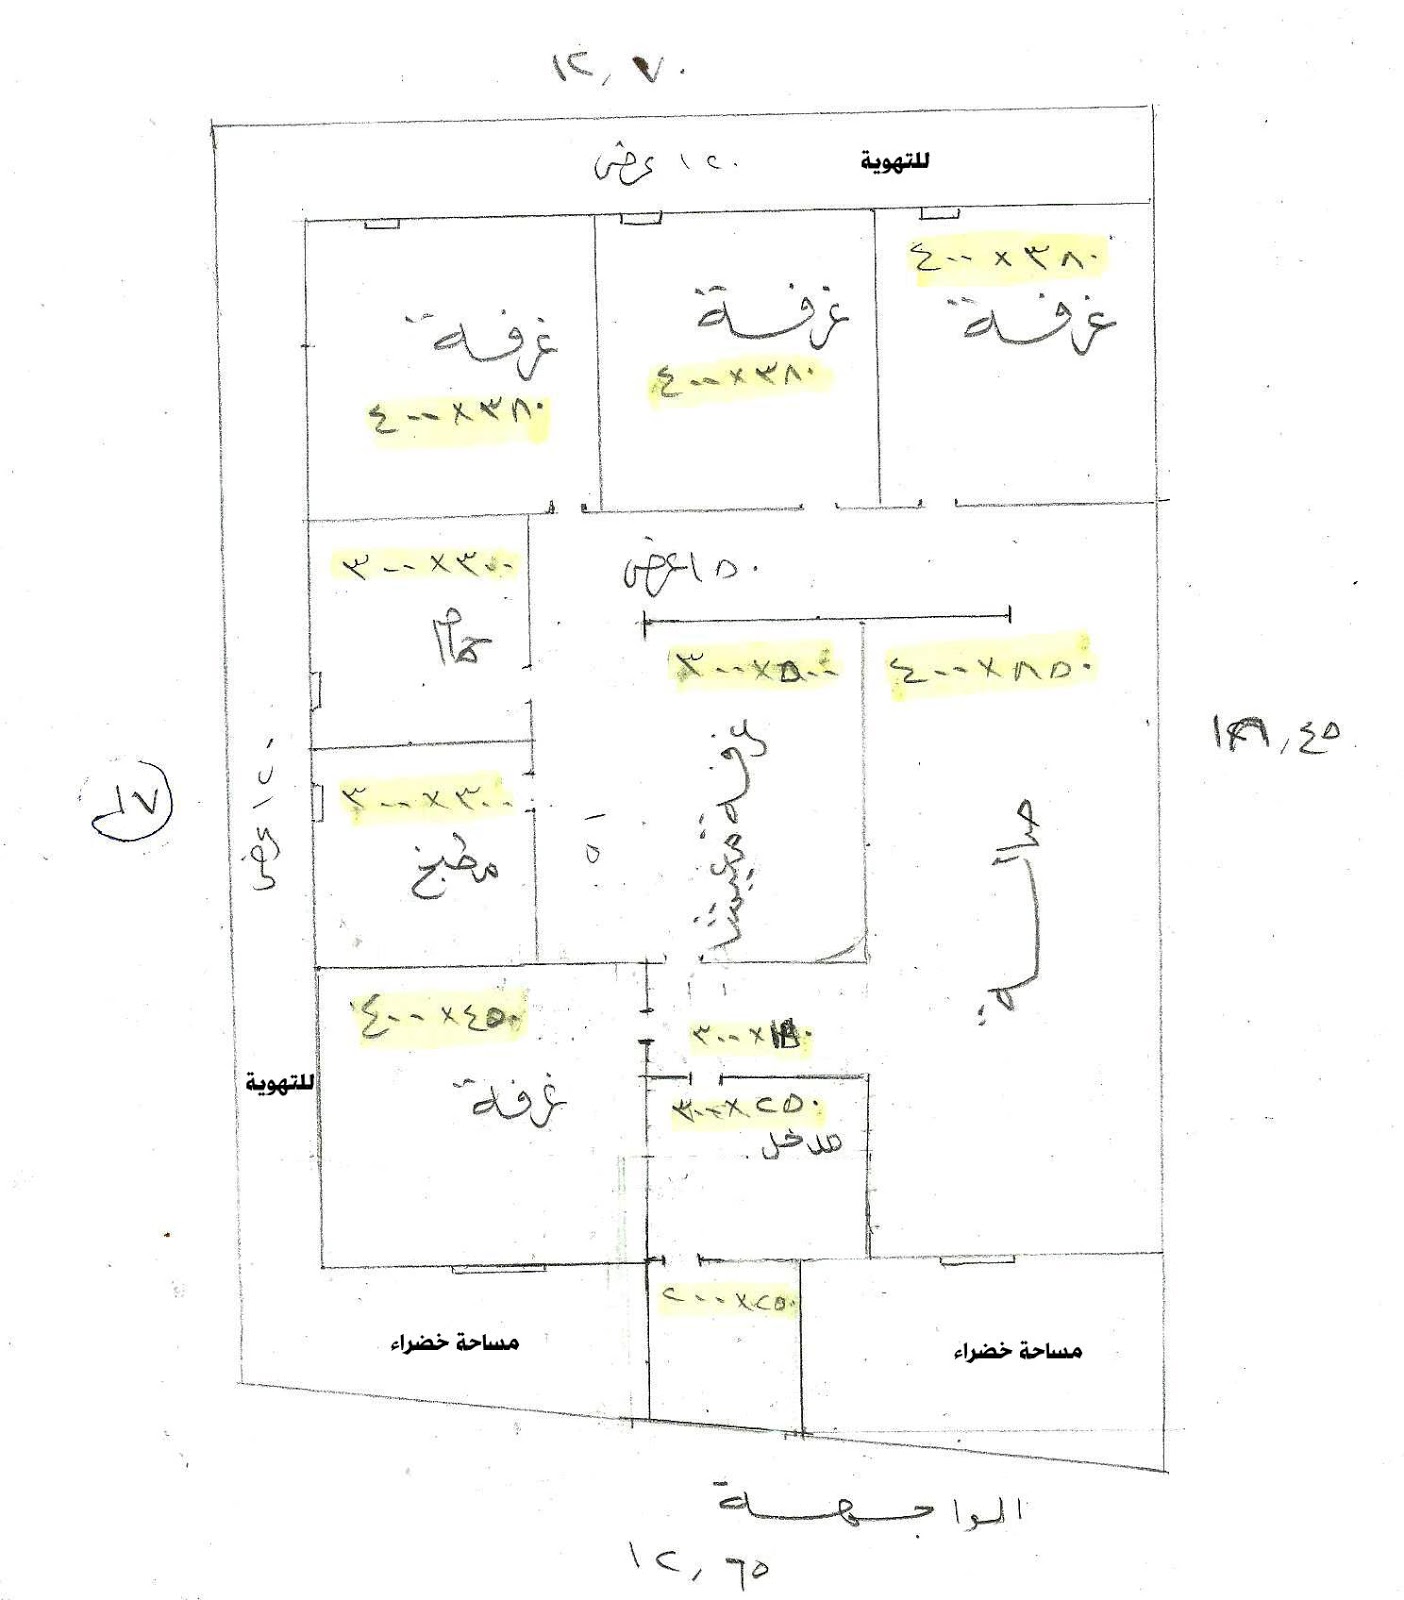 ١٢,٧٠
للتهوية
١٢٠ عرض
٤٠٠ × ٣٨٠
غرفة
غرفة
٤٠٠ × ٣٨٠
غرفة
٤٠٠ × ٣٨٠
٣٠٠ × ٣٠٠
حمام
١٥٠ عرض
٣٠٠ × ٥٠٠
غرفة معيشة
٤٠٠ × ٨٥٠
صالة
١٧
١٢٠ عرض
٣٠٠ × ٣٠٠
مطبخ
١٥٠
٤٠٠ × ٤٥٠
غرفة
للتهوية
٣٠٠ × ٢٥٠
مدخل
٢٠٠ × ٢٥٠
مساحة خضراء
مساحة خضراء
الواجهة
١٢,٦٥